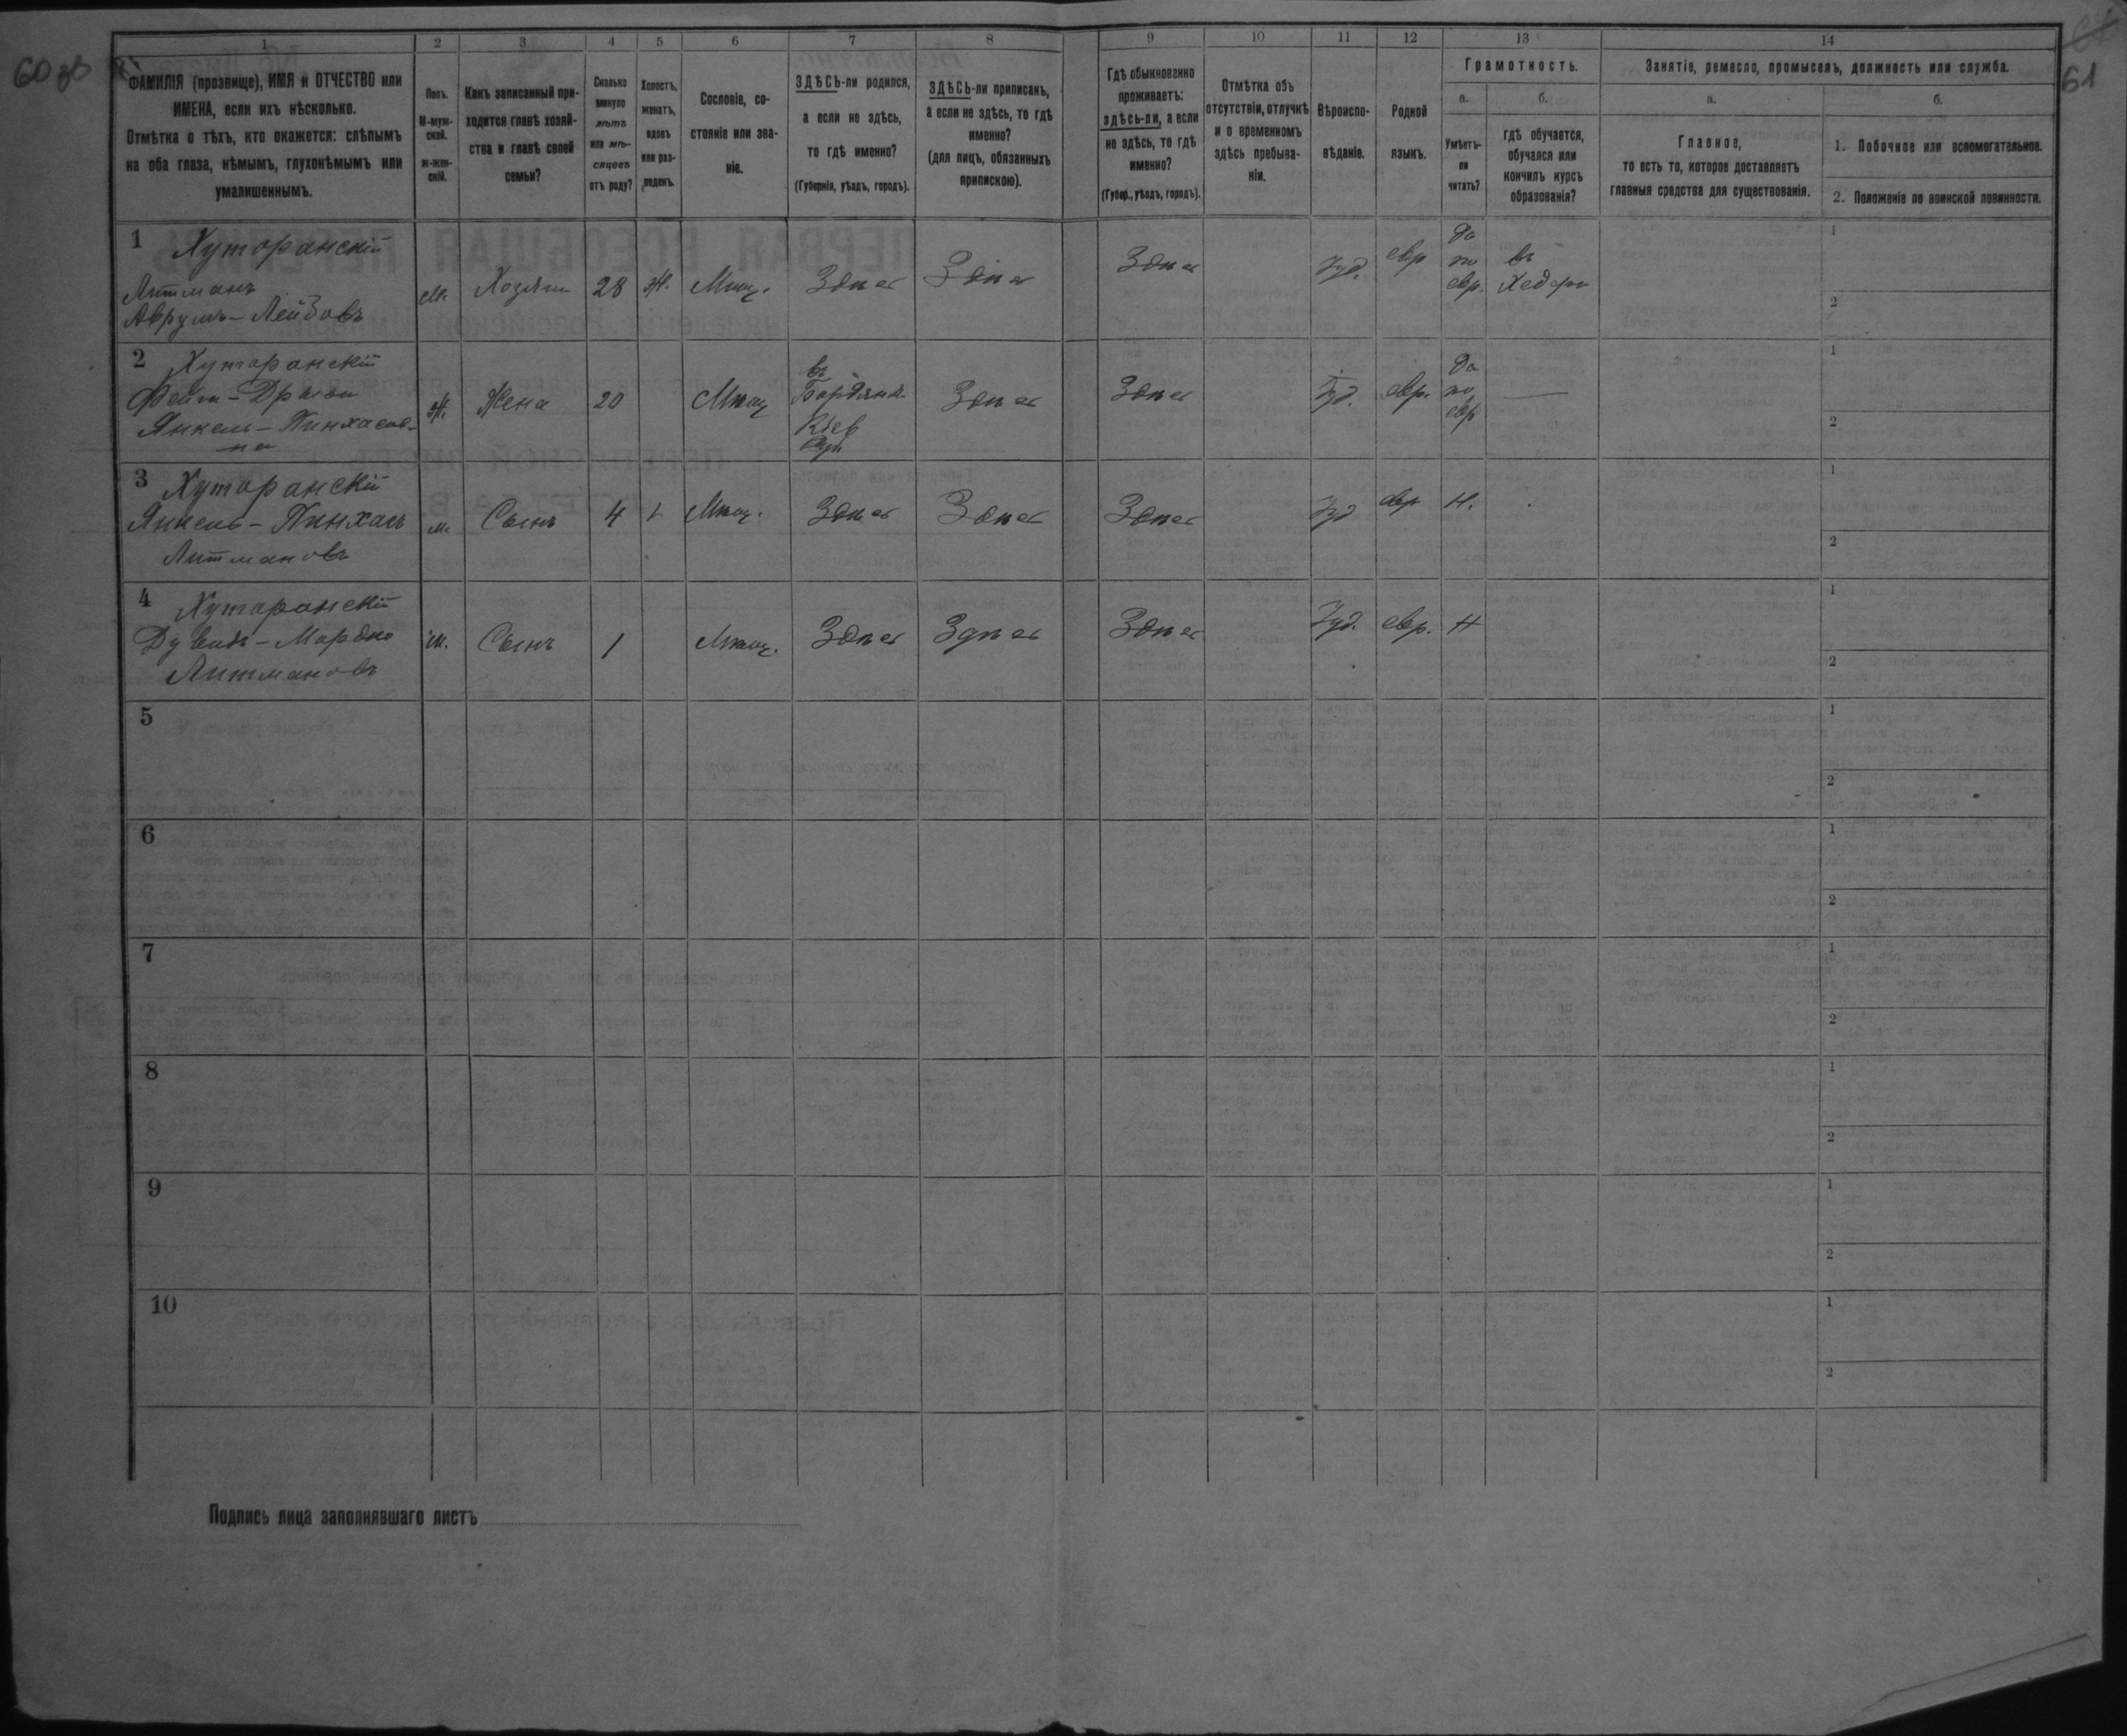 60 об
61
1 2 3 4 5 6 7 8 9 10 11 12 13 14
ФАМИЛІЯ (прозвище), ИМЯ и ОТЧЕСТВО или
ИМЕНА, если ихъ нѣсколько.
Отмѣтка о тѣхъ, кто окажется: слѣпымъ
на оба глаза, нѣмымъ, глухонѣмымъ или
умалишеннымъ.
Полъ.
М-муж-
ской.
ж-жен-
скій.
Какъ записанный при-
ходится главѣ хозяй-
ства и главѣ своей
семьи?
Сколько
минуло
лѣтъ
или мѣ-
сяцевъ
отъ роду?
Холостъ,
женатъ,
вдовъ
или раз-
веденъ.
Сословіе, со-
стояніе или зва-
ніе.
ЗДѢСЬ-ли родился,
а если не здѣсь,
то гдѣ именно?
(Губернія, уѣздъ, городъ).
ЗДѢСЬ-ли приписанъ,
а если не здѣсь, то гдѣ
именно?
(для лицъ, обязанныхъ
припискою).
Гдѣ обыкновенно
проживаетъ:
здѣсь-ли, а если
не здѣсь, то гдѣ
именно?
(Губер., уѣздъ, городъ).
Отмѣтка объ
отсутствіи, отлучкѣ
и о временномъ
здѣсь пребыва-
ніи.
Вѣроиспо-
вѣданіе.
Родной
языкъ.
Грамотность.
а.
Умѣетъ-
ли
читать?
б.
гдѣ обучается,
обучался или
кончилъ курсъ
образованія?
Занятіе, ремесло, промыселъ, должность или служба.
а.
Главное,
то есть то, которое доставляетъ
главныя средства для существованія.
б.
1. Побочное или вспомогательное.
2. Положеніе по воинской повинности.
1 Хуторанскій
Литманъ
Аврумъ-Лейбовъ
м. Хозяин 28 ж. Мѣщ. Здѣсь Здѣсь Здѣсь Іуд. евр
Да
по
евр.
въ
Хедери
1
2
2 Хуторанскій
Фейга-Дрызи
Янкель-Пинхасов-
на
ж. Жена 20 Мѣщ
въ
Бородянк.
Кіев
Губ
Здѣсь Здѣсь Іуд. евр.
Да
по
евр
—
1
2
3 Хуторанскій
Янкель-Пинхасъ
Литмановъ
м. Сынъ 4 Мѣщ. Здѣсь Здѣсь Здѣсь Іуд евр Н.
1
2
4 Хуторанскій
Дувидъ-Мордко
Литмановъ
м. Сынъ 1 Мѣщ. Здѣсь Здѣсь Здѣсь Іуд. евр. Н
1
2
5
1
2
6
1
2
7
1
2
8
1
2
9
1
2
10
1
2
Подпись лица заполнявшаго листъ